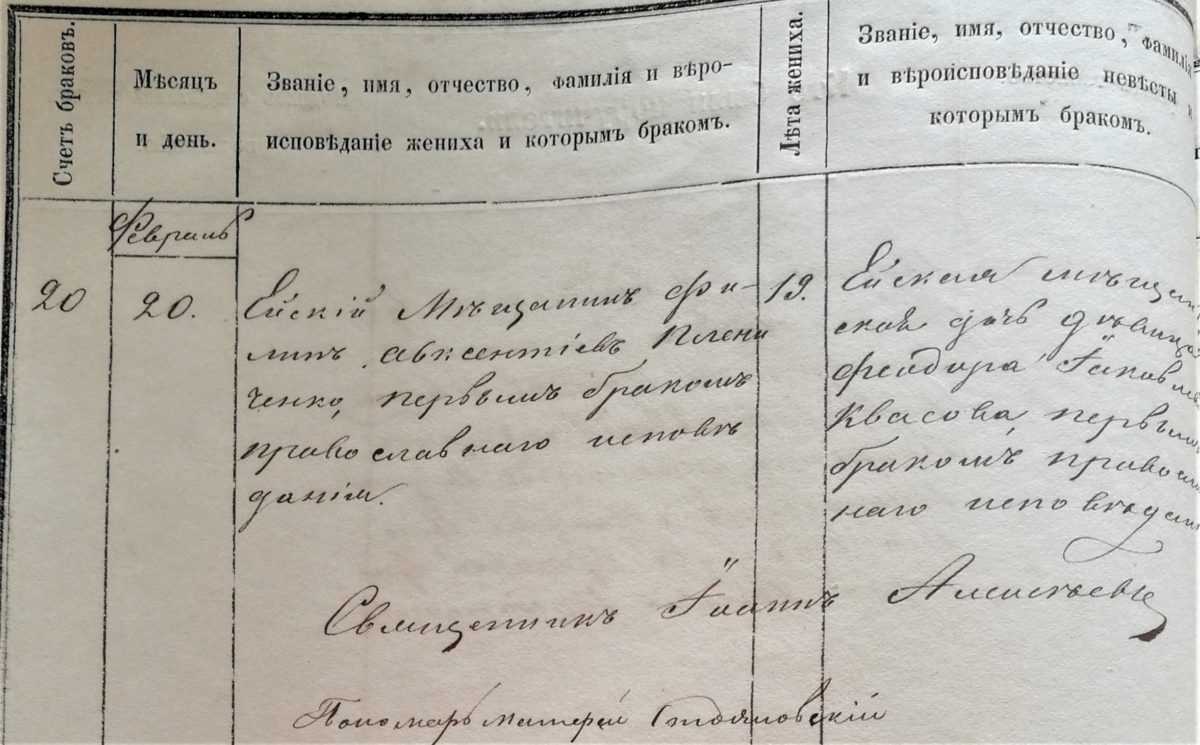 Счетъ браковъ.
Мѣсяцъ
и день.
Званіе, имя, отчество, фамилія и вѣро-
исповѣданіе жениха и которымъ бракомъ.
Лѣта жениха.
Званіе, имя, отчество, фамилія
и вѣроисповѣданіе невѣсты и
которымъ бракомъ.
Февраль
20
20.
Ейскій Мѣщанинъ Фи-
липъ Авксентіевъ
ченко, первымъ бракомъ
православнаго исповѣ
данія.
19.
Ейская мѣщан
ская дочь дѣвица
Феодора Іаковл
Квасова, первым
бракомъ, правосл
наго исповѣдан
Священникъ Іоаннъ Алексѣевъ
Пономарь Матфей Стояновскій